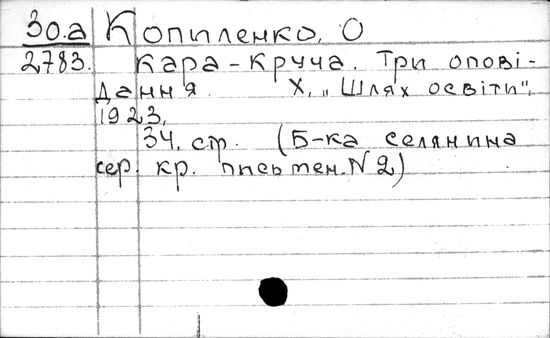 30.а Копиленко, О
2783. Кара-круча. Три опові-
дання. Х, „Шлях освіти",
1923,
34, стр. (Б-ка селянина
сер. кр. письмен. N 2)